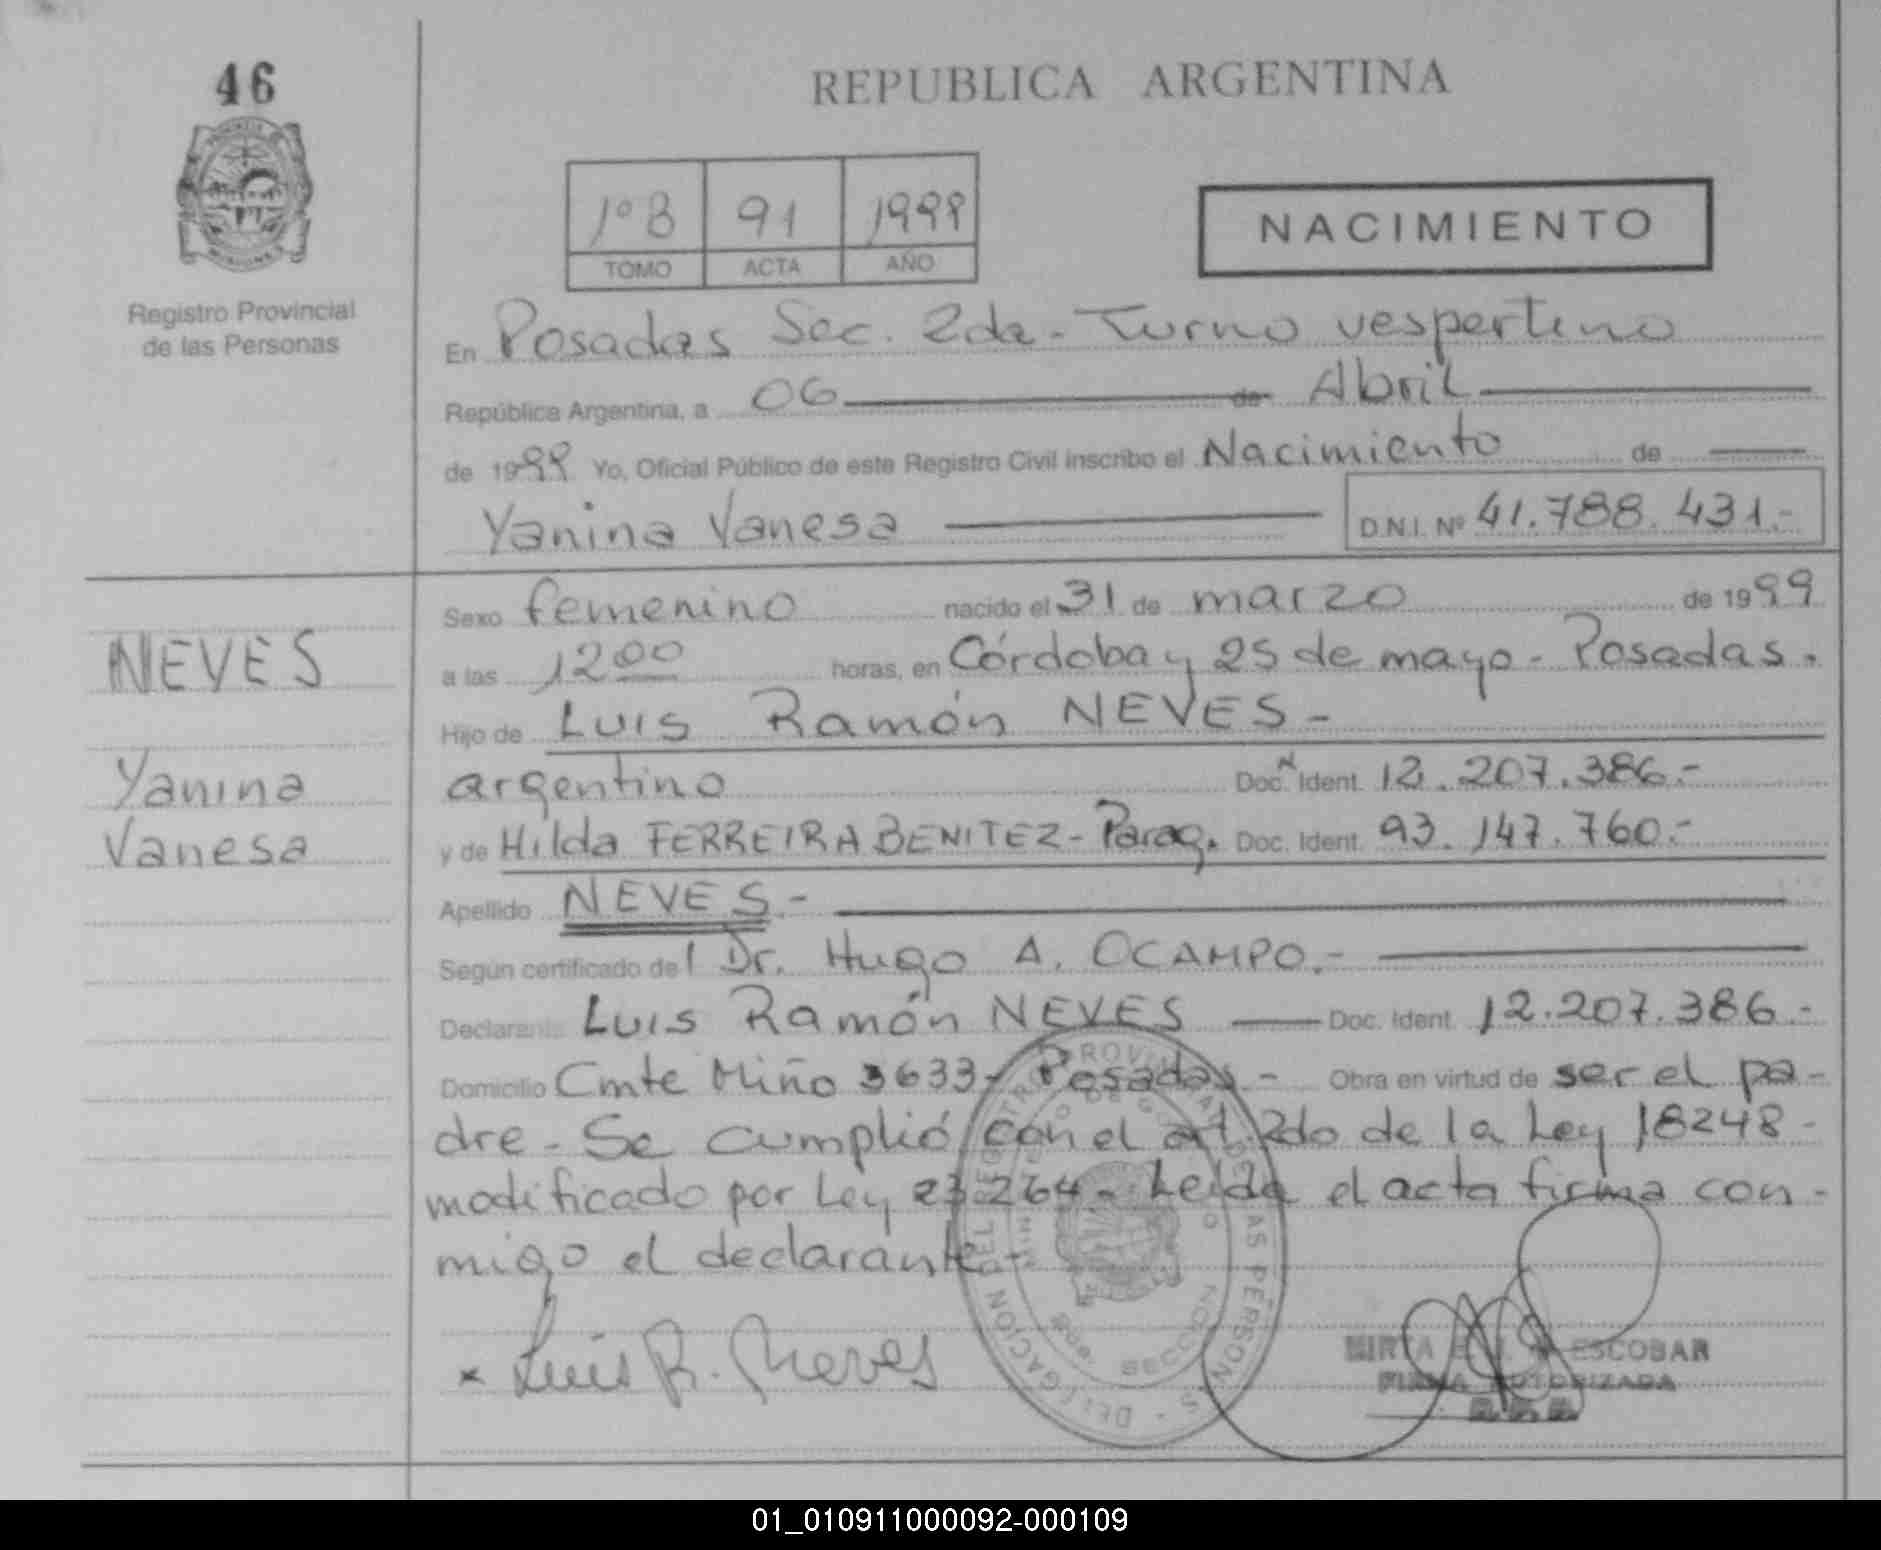 46
REPUBLICA ARGENTINA
1º B 91 1999
TOMO ACTA AÑO
NACIMIENTO
Registro Provincial
de las Personas
En Posadas Sec. 2da - Turno vespertino
República Argentina, a 06 de Abril
de 1999 Yo, Oficial Público de este Registro Civil inscribo el Nacimiento de
Yanina Vanesa D.N.I. Nº 41.788.431.-
Sexo femenino nacido el 31 de marzo de 1999
NEVES
a las 12 00 horas, en Córdoba y 25 de mayo - Posadas.
Hijo de Luis Ramón NEVES -
Yanina
argentino Doc. Ident. 12.207.386.-
Vanesa
y de Hilda FERREIRA BENITEZ - Parag. Doc. Ident. 93.147.760.-
Apellido NEVES.-
Según certificado del Dr. Hugo A. OCAMPO.-
Declarante Luis Ramón NEVES Doc. Ident. 12.207.386.-
Domicilio Cmte Miño 3633 - Posadas - Obra en virtud de ser el pa-
dre - Se cumplió con el art. 2do de la Ley 18248 -
modificado por Ley 23264 - Leida el acta firma con-
migo el declarante -
x Luis R. Neves
MIRTA ESCOBAR
FIRMA AUTORIZADA
SECCION
01_010911000092-000109